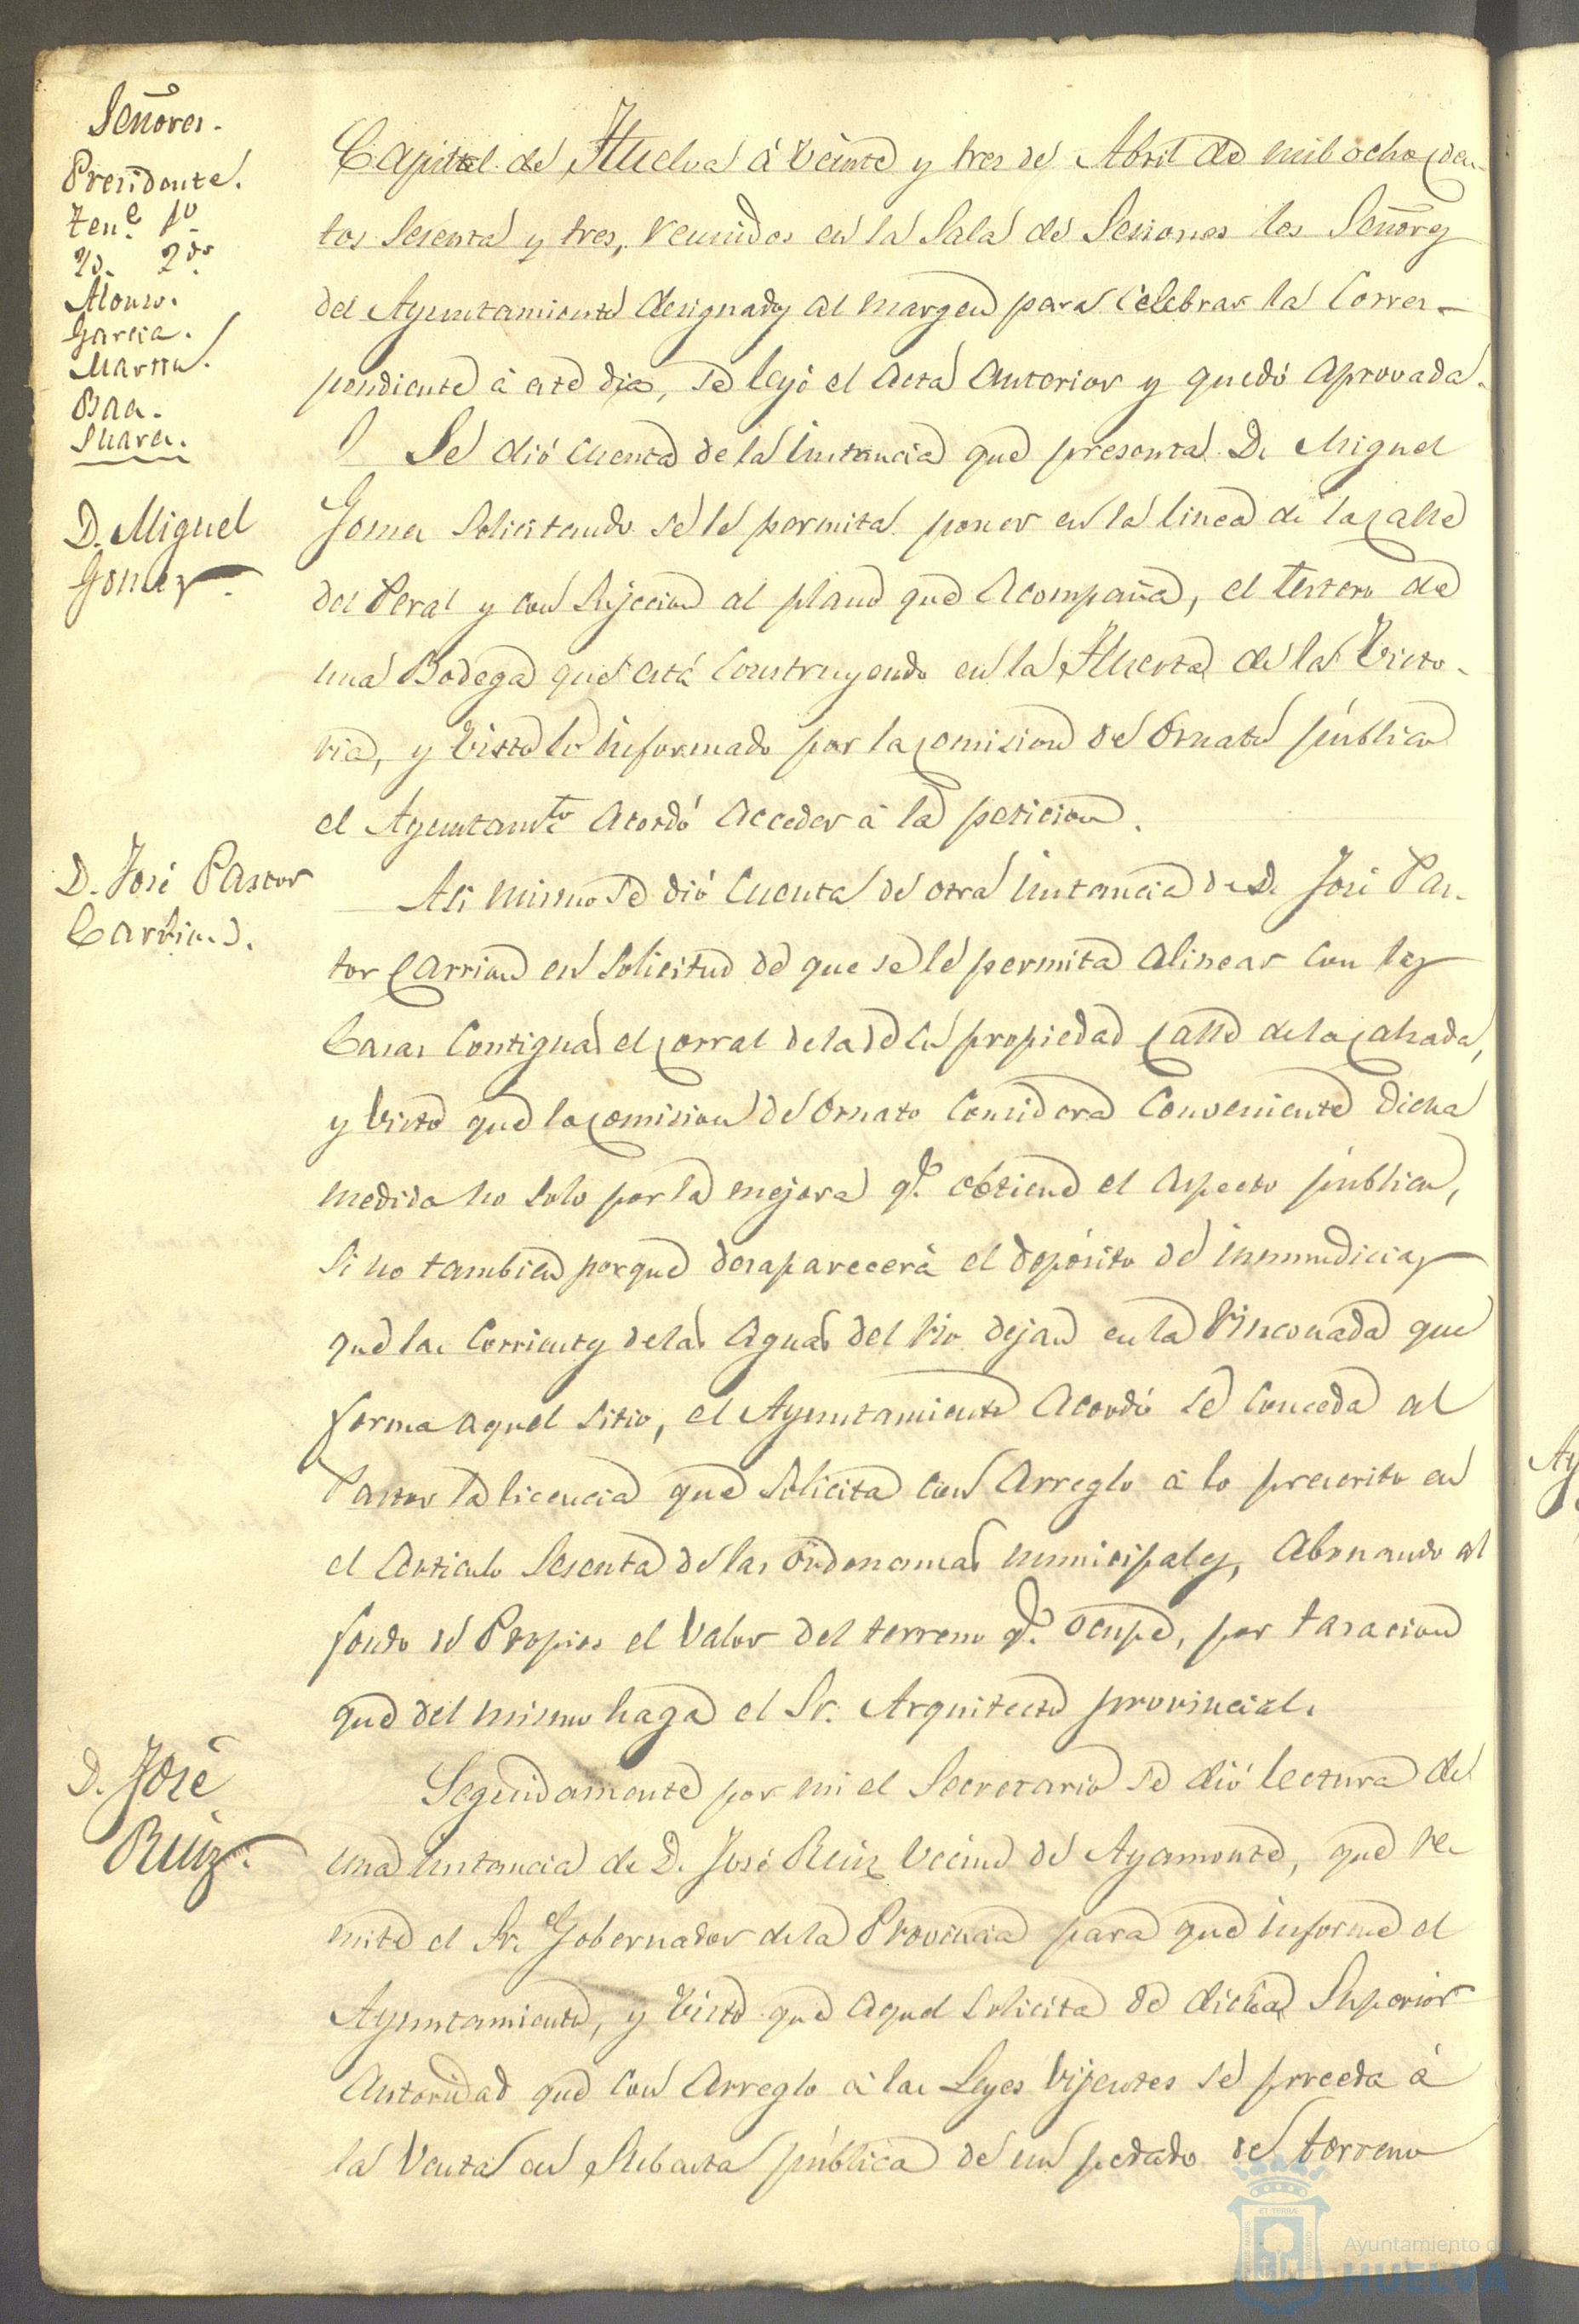 Señores.
Presidente.
Ten.e 1º
Yd. 2do
Alonso.
Garcia.
Martin.
Baa.
Suarez.
Capital de Huelva á veinte y tres de Abril de mil ochocien-
tos sesenta y tres, reunidos en la Sala de Sesiones los Señores
del Ayuntamiento designados al margen para celebrar la corres-
pondiente á este dia, se leyó el acta anterior y quedó aprovada.
D. Miguel
Gomez.
Se dió cuenta de la instancia que presenta D. Miguel
Gomez solicitando se le permita poner en la linea de la calle
del Peral y con sujecion al plano que acompaña, el testero de
una Bodega que está construyendo en la Huerta de la Victo-
ria, y visto lo informado por la comision de Ornato público
el Ayuntamto acordó acceder á la peticion.
D. José Pastor
Carrion.
Asi mismo se dió cuenta de otra instancia de D. José Pas-
tor Carrion en solicitud de que se le permita alinear con las
casas contiguas el corral de la de su propiedad calle de la calzada,
y visto que la comision de Ornato considera conveniente dicha
medida no solo por la mejora q.e obtiene el aspecto público,
si no tambien porque desaparecerá el depósito de inmundicias
que las corrientes de las aguas del rio dejan en la rinconada que
forma aquel sitio, el Ayuntamiento acordó se conceda al
Pastor la licencia que solicita con arreglo á lo prescrito en
el articulo sesenta de las ordenanzas municipales, abonando al
fondo de Propios el valor del terreno q.e ocupe, por tasacion
que del mismo haga el Sr. Arquitecto provincial.
D. José
Ruiz.
Seguidamente por mi el Secretario se dió lectura de
una instancia de D. José Ruiz vecino de Ayamonte, que re-
mite el Sr. Gobernador de la Provincia para que informe el
Ayuntamiento, y visto que aquel solicita de dicha Superior
Autoridad que con arreglo á las Leyes vijentes se proceda á
la venta en subasta pública de un pedazo de terreno
Ayuntamiento de
HUELVA